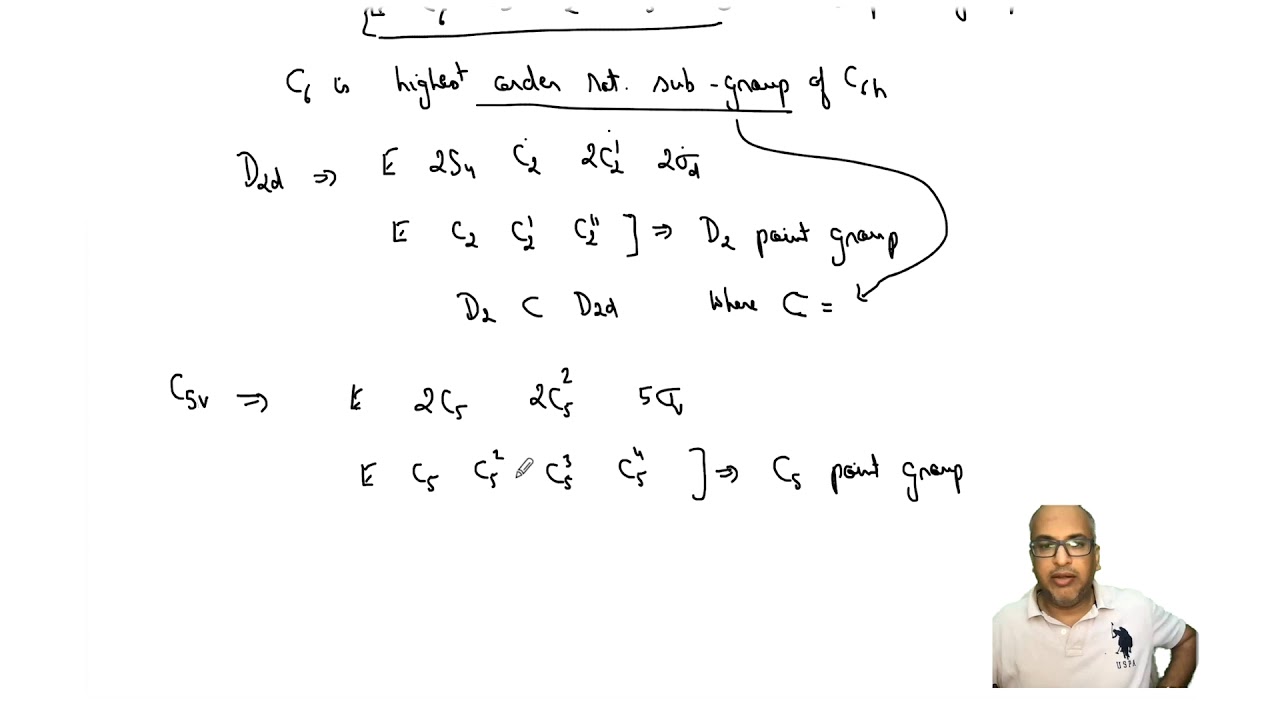 C₆ is highest order rot. sub-group of C₆h
D₂d ⇒ E 2S₄ C₂ 2C₂' 2σd
E C₂ C₂' C₂'' ] ⇒ D₂ point group
D₂ ⊂ D₂d Where ⊂ =
C₅v ⇒ E 2C₅ 2C₅² 5σv
E C₅ C₅² C₅³ C₅⁴ ] ⇒ C₅ point group
USPA